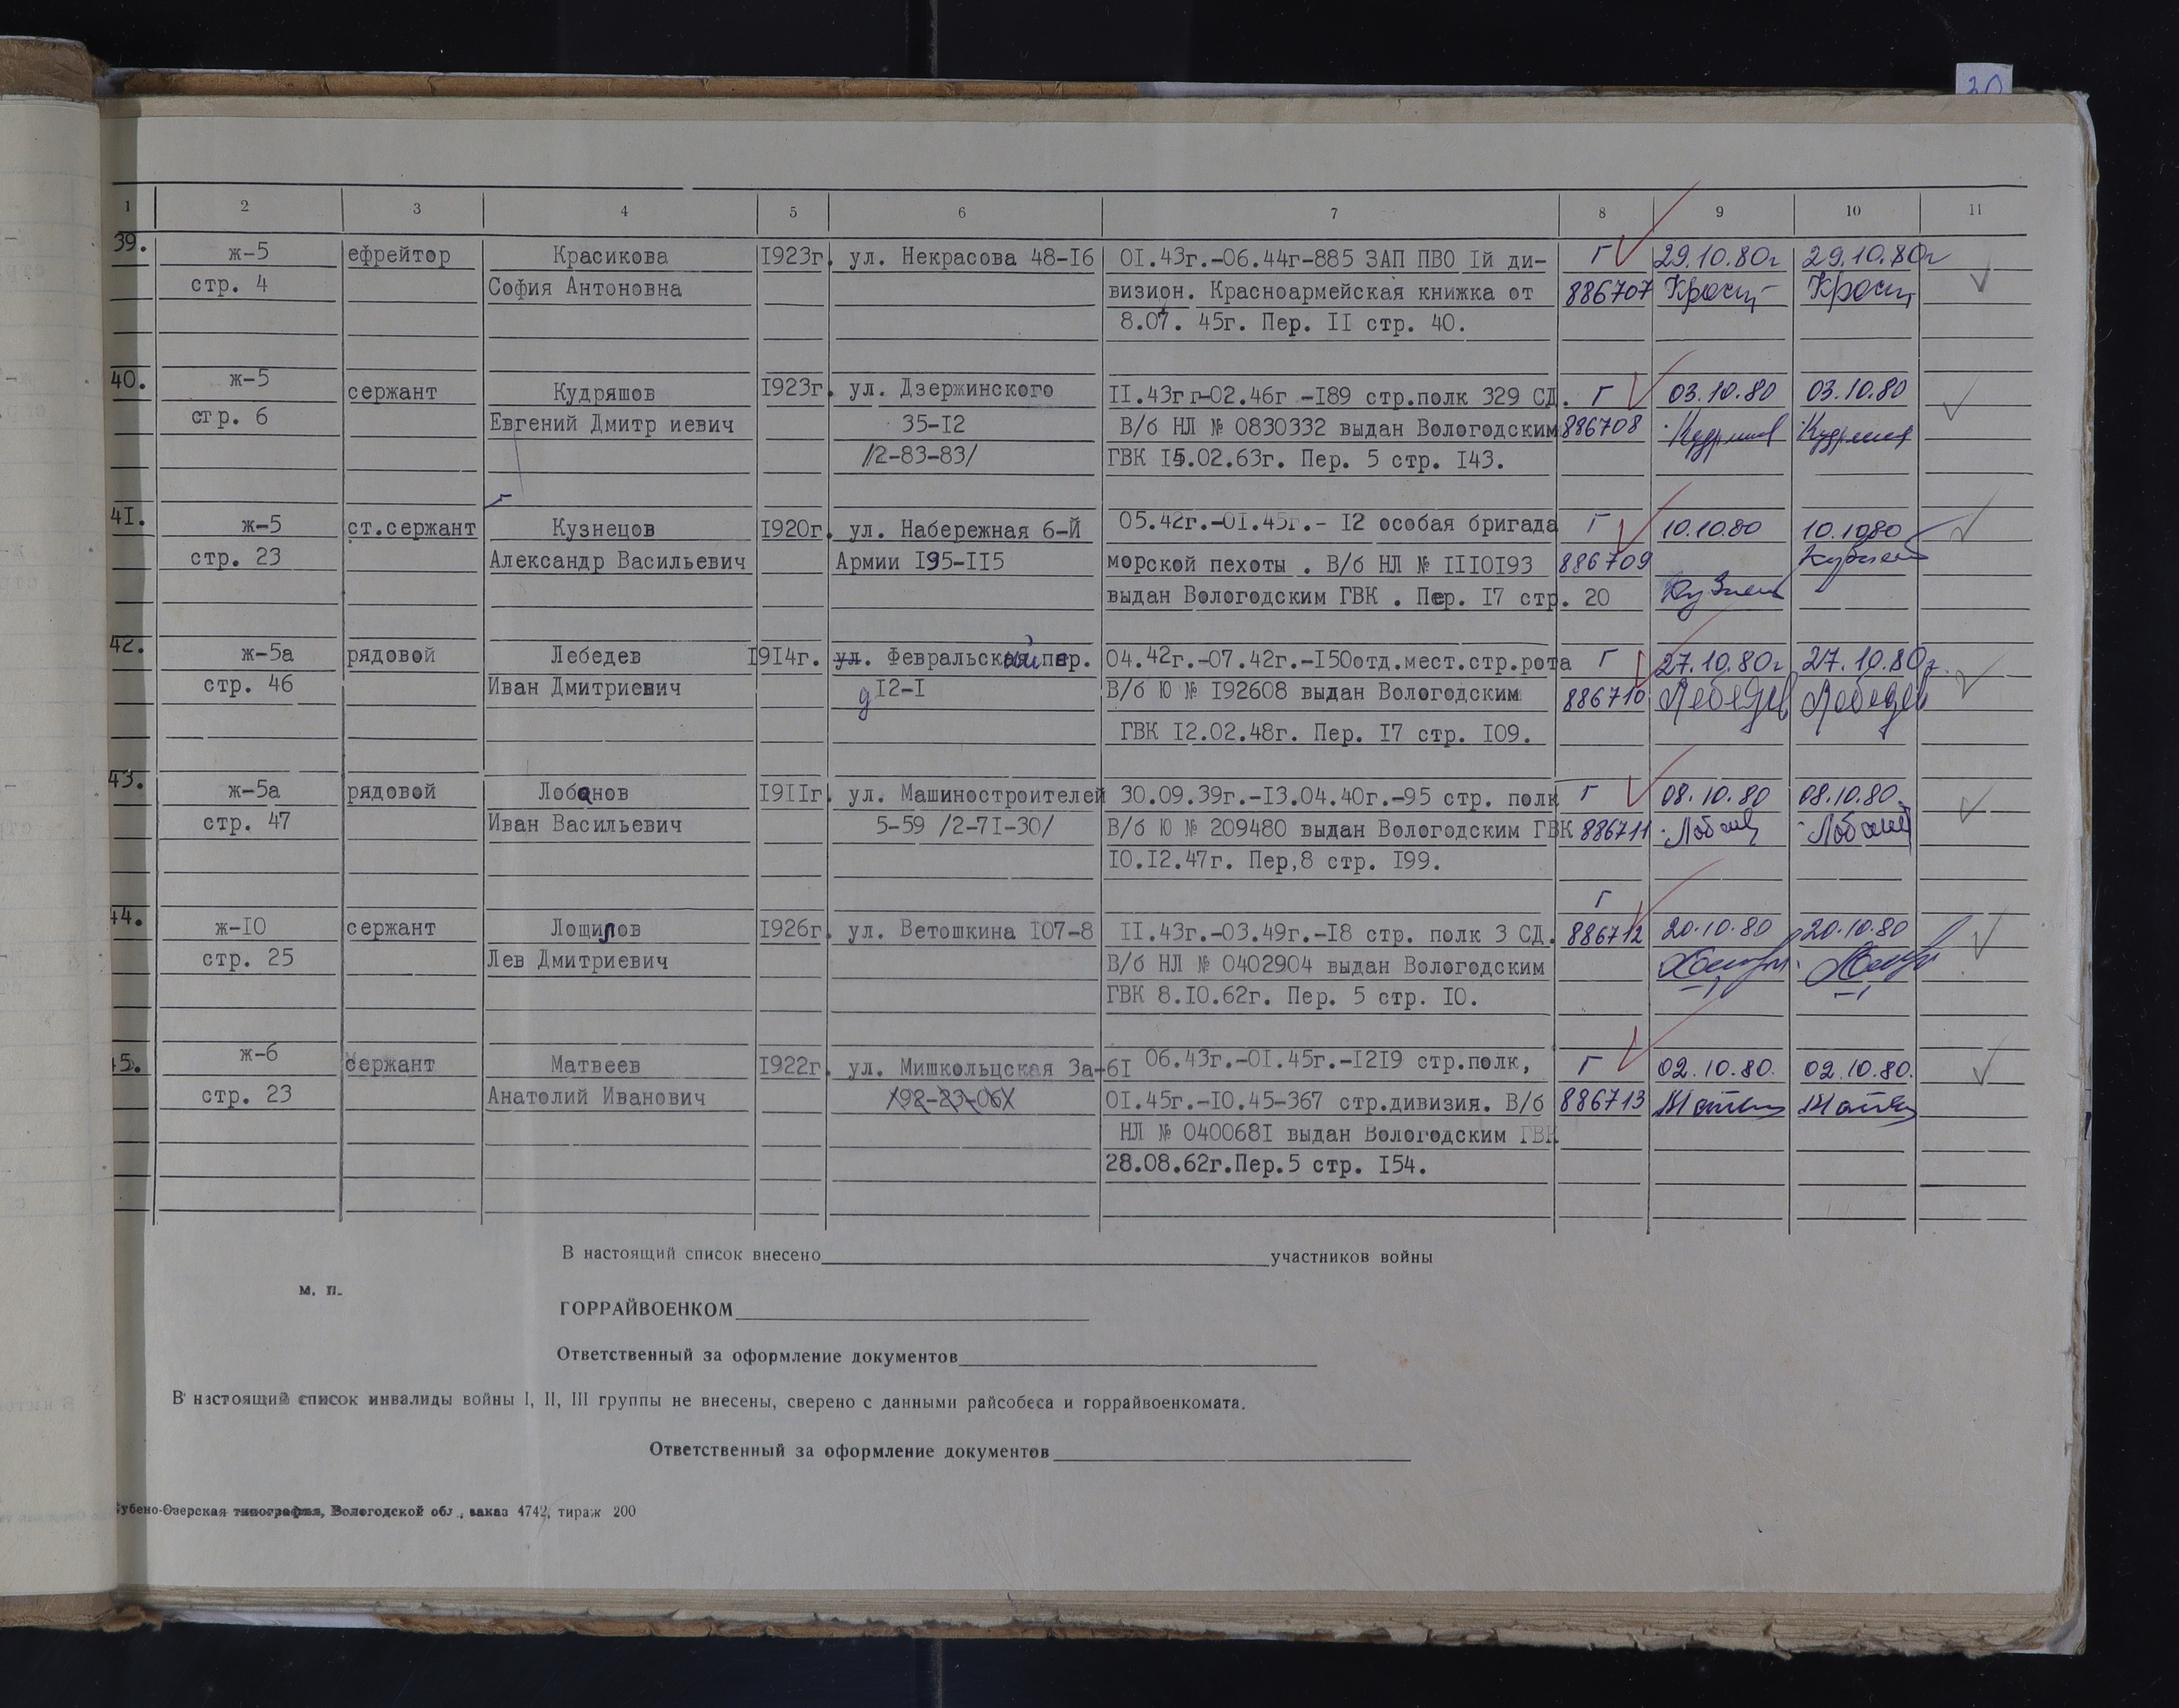 30
1 2 3 4 5 6 7 8 9 10 11
39. ж-5 ефрейтор Красикова 1923г. ул. Некрасова 48-16 01.43г.-06.44г-885 ЗАП ПВО 1й ди- Г 29.10.80г 29.10.80г
стр. 4 София Антоновна визион. Красноармейская книжка от 886707
8.07. 45г. Пер. II стр. 40.
40. ж-5 сержант Кудряшов 1923г. ул. Дзержинского II.43гг-02.46г -189 стр.полк 329 СД. Г 03.10.80 03.10.80
стр. 6 Евгений Дмитр иевич 35-12 В/б НЛ № 0830332 выдан Вологодским 886708
/2-83-83/ ГВК 15.02.63г. Пер. 5 стр. 143.
41. ж-5 ст.сержант Кузнецов 1920г. ул. Набережная 6-Й 05.42г.-01.45г.- 12 особая бригада Г 10.10.80 10.10.80
стр. 23 Александр Васильевич Армии 195-115 морской пехоты . В/б НЛ № 1110193 886709
выдан Вологодским ГВК . Пер. 17 стр. 20
42. ж-5а рядовой Лебедев 1914г. ул. Февральский пер. 04.42г.-07.42г.-150отд.мест.стр.рота Г 27.10.80г 27.10.80г.
стр. 46 Иван Дмитриевич д 12-1 В/б Ю № 192608 выдан Вологодским 886710 Лебедев Лебедев
ГВК 12.02.48г. Пер. 17 стр. 109.
43. ж-5а рядовой Лобанов 1911г. ул. Машиностроителей 30.09.39г.-13.04.40г.-95 стр. полк Г 08.10.80 08.10.80.
стр. 47 Иван Васильевич 5-59 /2-71-30/ В/б Ю № 209480 выдан Вологодским ГВК 886711
10.12.47г. Пер,8 стр. 199.
Г
44. ж-10 сержант Лощилов 1926г. ул. Ветошкина 107-8 II.43г.-03.49г.-18 стр. полк 3 СД. 886712 20.10.80 20.10.80
стр. 25 Лев Дмитриевич В/б НЛ № 0402904 выдан Вологодским
ГВК 8.10.62г. Пер. 5 стр. 10.
45. ж-6 сержант Матвеев 1922г. ул. Мишкольцская 3а-61 06.43г.-01.45г.-1219 стр.полк, Г 02.10.80. 02.10.80.
стр. 23 Анатолий Иванович /92-23-06/ 01.45г.-10.45-367 стр.дивизия. В/б 886713
НЛ № 0400681 выдан Вологодским ГВК
28.08.62г.Пер.5 стр. 154.
В настоящий список внесено участников войны
м. п.
ГОРРАЙВОЕНКОМ
Ответственный за оформление документов
В настоящий список инвалиды войны I, II, III группы не внесены, сверено с данными райсобеса и горрайвоенкомата.
Ответственный за оформление документов
Кубено-Озерская типография, Вологодской обл., заказ 4742, тираж 200